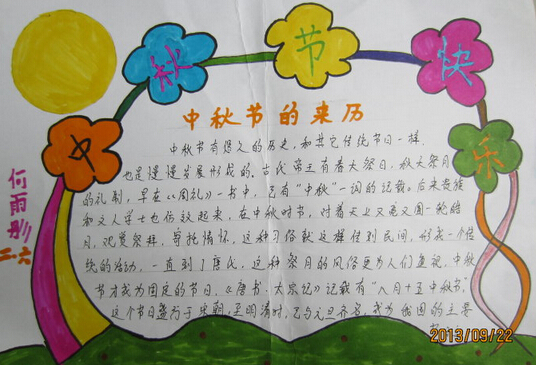 中秋节快乐
中秋节的来历
何雨彤
二.六
中秋节有悠久的历史,和其它传统节日一样,
也是慢慢发展形成的,古代帝王有春天祭日,秋天祭月
的礼制,早在《周礼》一书中,已有“中秋”一词的记载。后来贵族
和文人学士也仿效起来,在中秋时节,对着天上又亮又圆一轮皓
月,观赏祭拜,寄托情怀,这种习俗就这样传到民间,形成一个传
统的活动,一直到了唐代,这种祭月的风俗更为人们重视,中秋
节才成为固定的节日,《唐书·太宗记》记载有“八月十五中秋节,
这个节日盛行于宋朝,至明清时,已与元旦齐名,成为我国的主要
2013/09/22